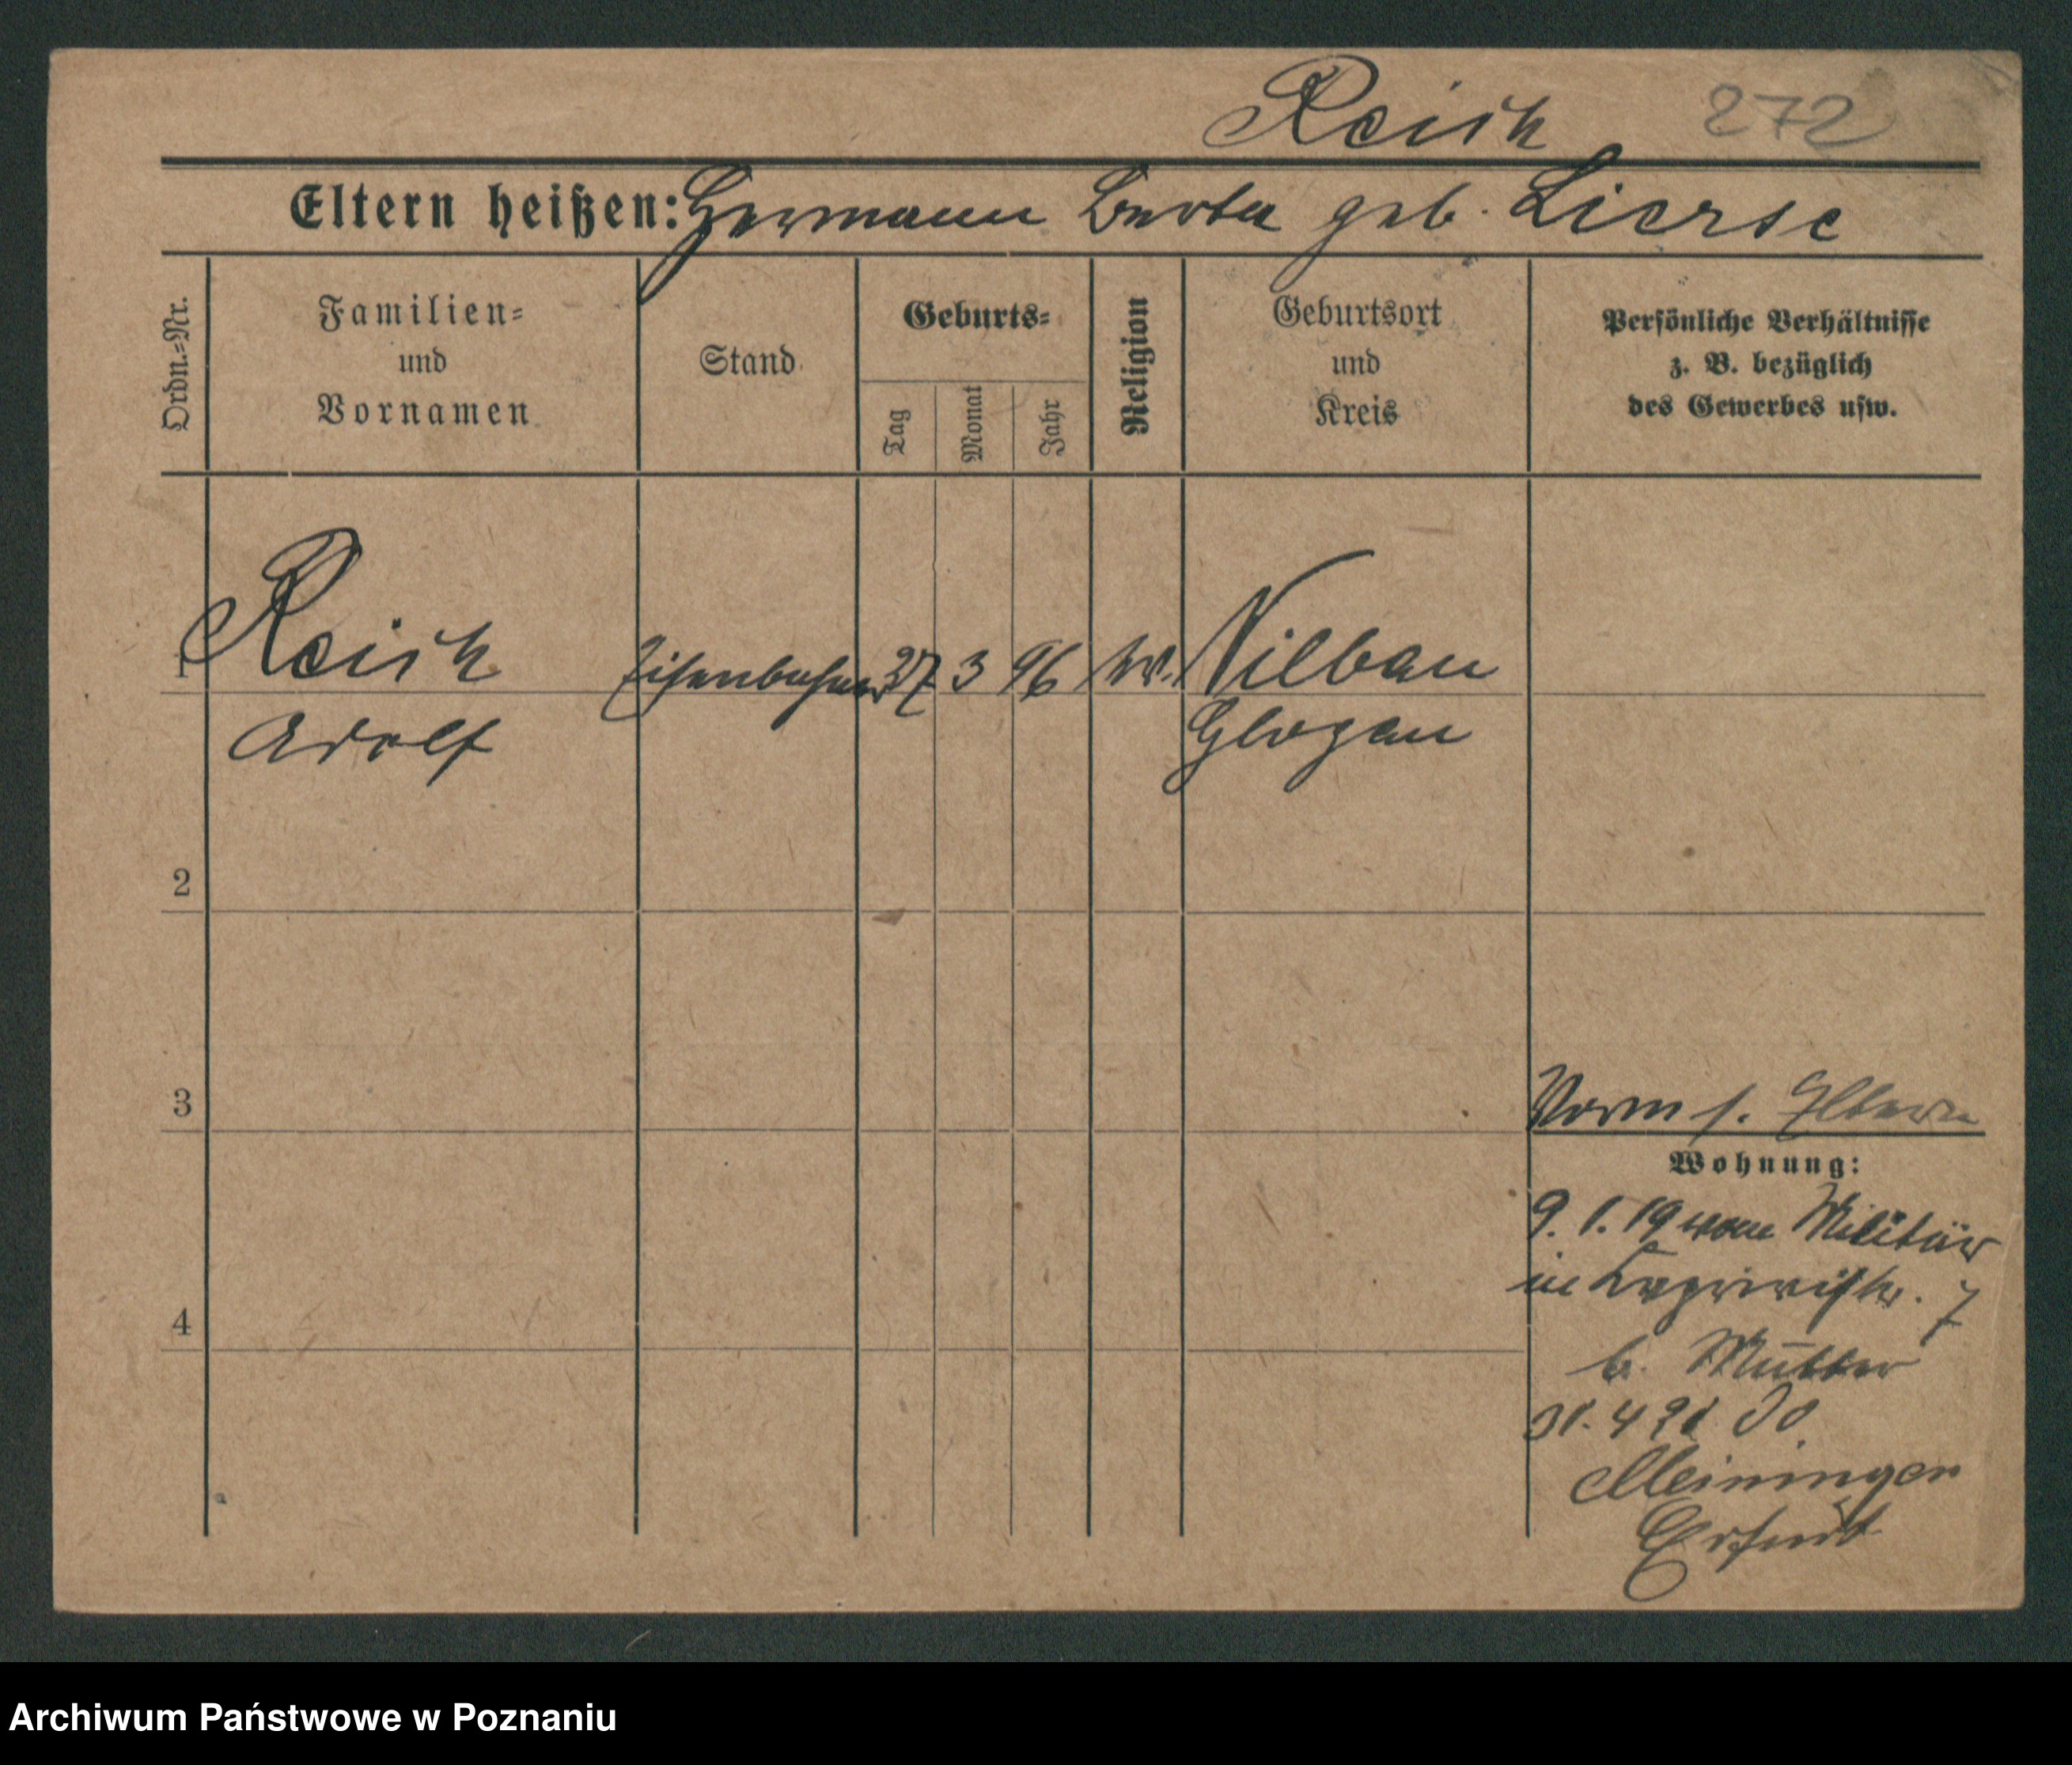 Reich 272
Eltern heißen: Hermann Berta geb. Lierse
Ordn.=Nr.
Familien=
und
Vornamen
Stand
Geburts=
Tag
Monat
Jahr
Religion
Geburtsort
und
Kreis
Persönliche Verhältnisse
z. B. bezüglich
des Gewerbes usw.
1 Reich Eisenbahner 27 3 96 Nilbau
Adolf Glogau
2
3
Vorm s. Eltern
Wohnung:
9. 1. 19 vom Militär
in Caprivistr. 7
4
b. Mutter
Meiningen
Erfurt
Archiwum Państwowe w Poznaniu